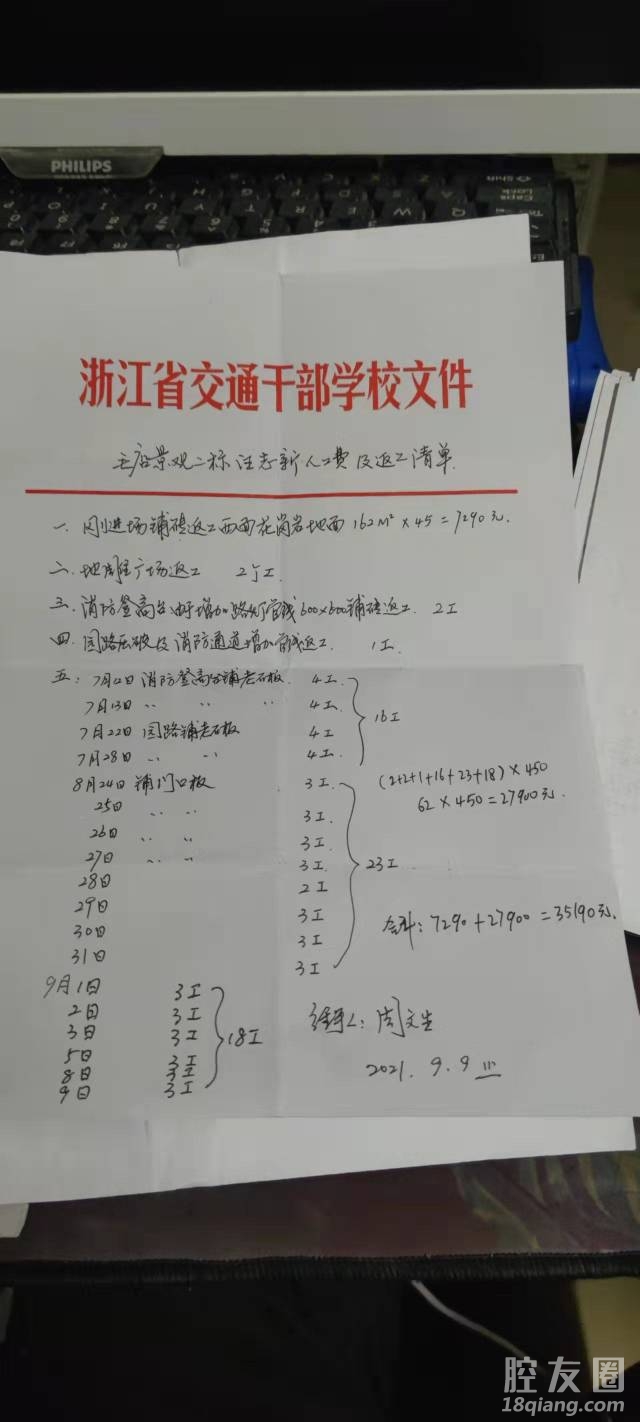 PHILIPS
浙江省交通干部学校文件
王店景观二标汪志新人工费及返工清单
一、刚进场铺砖返工西面花岗岩地面 162M² × 45 = 7290元.
二、地雕广场返工 2个工.
三、消防登高台由于增加路灯管线600×600铺砖返工. 2工
四、园路压破及消防通道增加管线返工. 1工.
五: 7月12日 消防登高台铺老石板. 4工.
7月13日 〃 〃 〃 4工.
7月22日 园路铺老石板 4工
7月28日 〃 〃 4工.
16工
8月24日 铺门口板 3工.
25日 〃 〃 3工.
26日 〃 〃 3工.
27日 〃 〃 3工.
28日 2工
29日 3工
30日 3工.
31日 3工
23工
(2+2+1+16+23+18) × 450
62 × 450 = 27900元.
合计: 7290 + 27900 = 35190元.
9月1日 3工
2日 3工
3日 3工
5日 3工
8日 3工
9日 3工
18工
经手人: 周文生
2021. 9. 9
腔友圈
18qiang.com